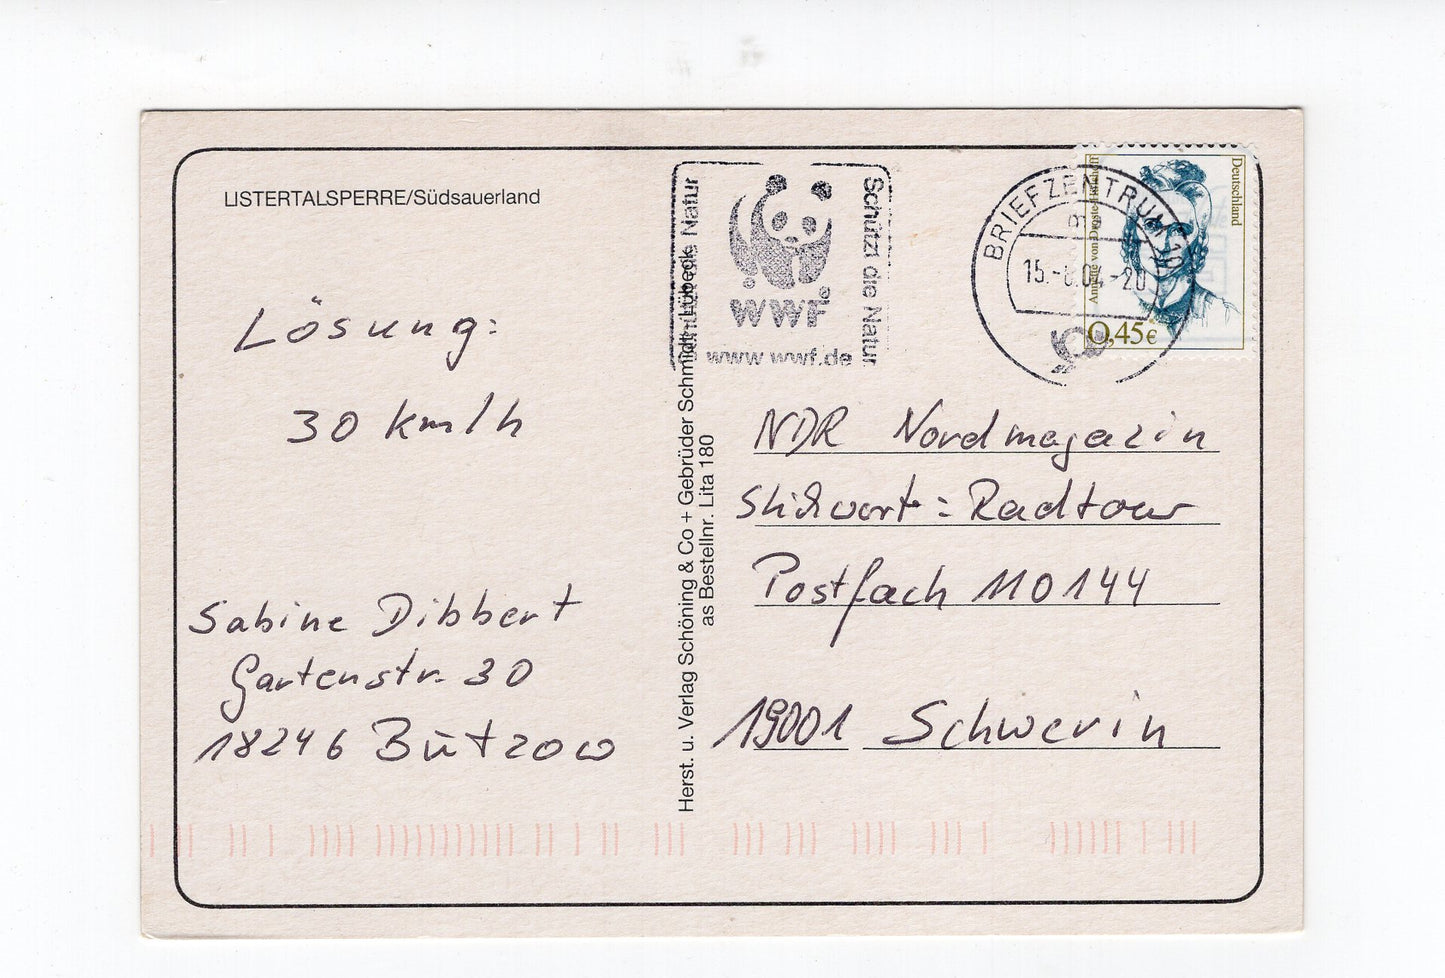 LISTERTALSPERRE/Südsauerland
Lösung:
30 km/h
Sabine Dibbert
Gartenstr. 30
18246 Bützow
Herst. u. Verlag Schöning & Co + Gebrüder Schmidt, Lübeck
as Bestellnr. Lita 180
Schützt die Natur
WWF
www.wwf.de
Schützt die Natur
BRIEFZENTRUM
15.-8.04-20
Deutschland
Annette von Droste-Hülshoff
0,45€
NDR Nordmagazin
Stichwort: Radtour
Postfach 110144
19001 Schwerin